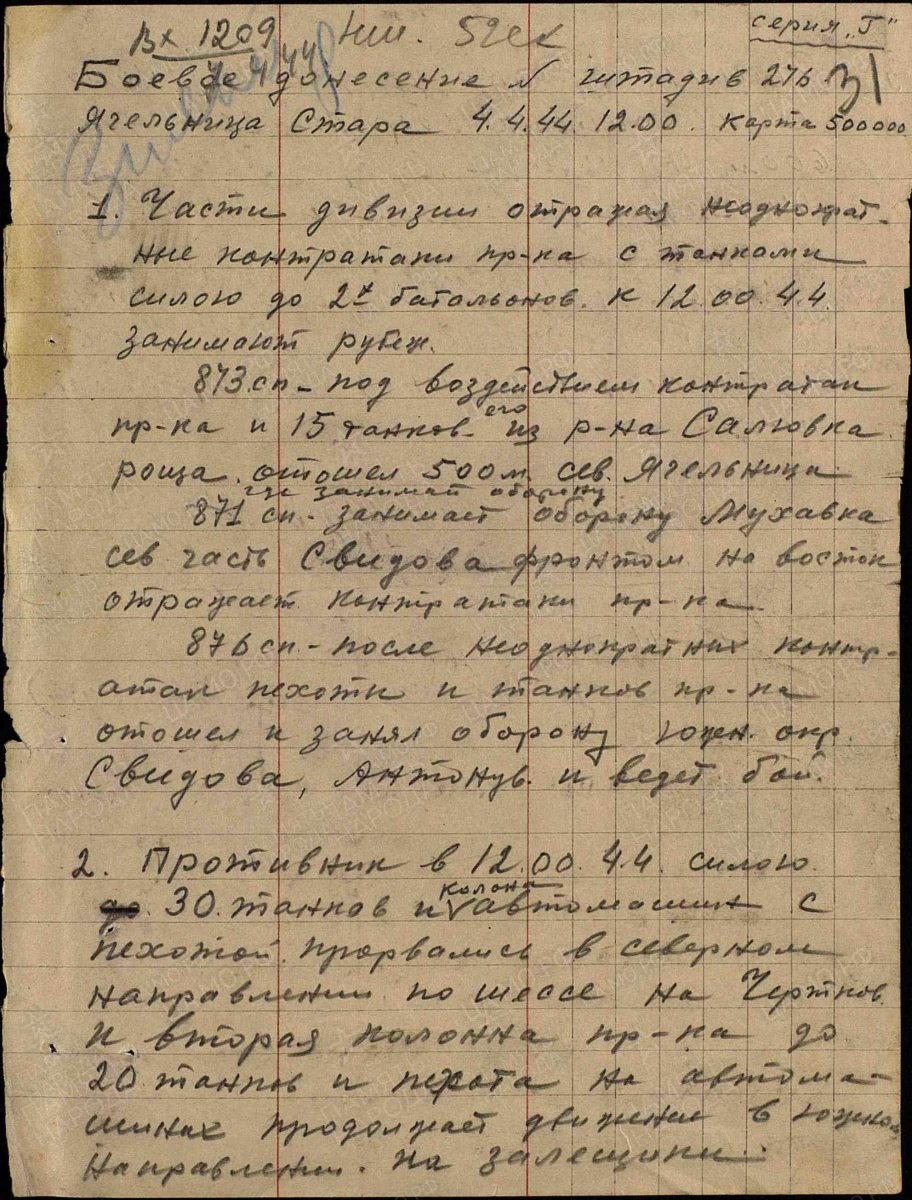 Вх 1209
серия "Г"
Боевое донесение № штадив 276
31
Ягельница Стара 4.4.44. 12.00. карта 500000
1. Части дивизии отражая неоднократ-
ные контратаки пр-ка с танками
силою до 2х батальонов. к 12.00. 4.4.
занимают рубеж.
873 сп - под воздействием контратак
пр-ка и 15 танков его из р-на Салювка
роща отошел 500 м. сев. Ягельница
где занимает оборону
871 сп - занимает оборону Мухавка
сев часть Свидова фронтом на восток
отражает контратаки пр-ка
876 сп - после неоднократных контр-
атак пехоты и танков пр-ка
отошел и занял оборону южн. окр.
Свидова, Антонув. и ведет бой.
2. Противник в 12.00. 4.4. силою
до 30 танков и колона автомашин с
пехотой прорвались в северном
направлении по шоссе на Чертков
и вторая колонна пр-ка до
20 танков и пехота на автома-
шинах продолжает движение в южном
направлении. на Залещики.